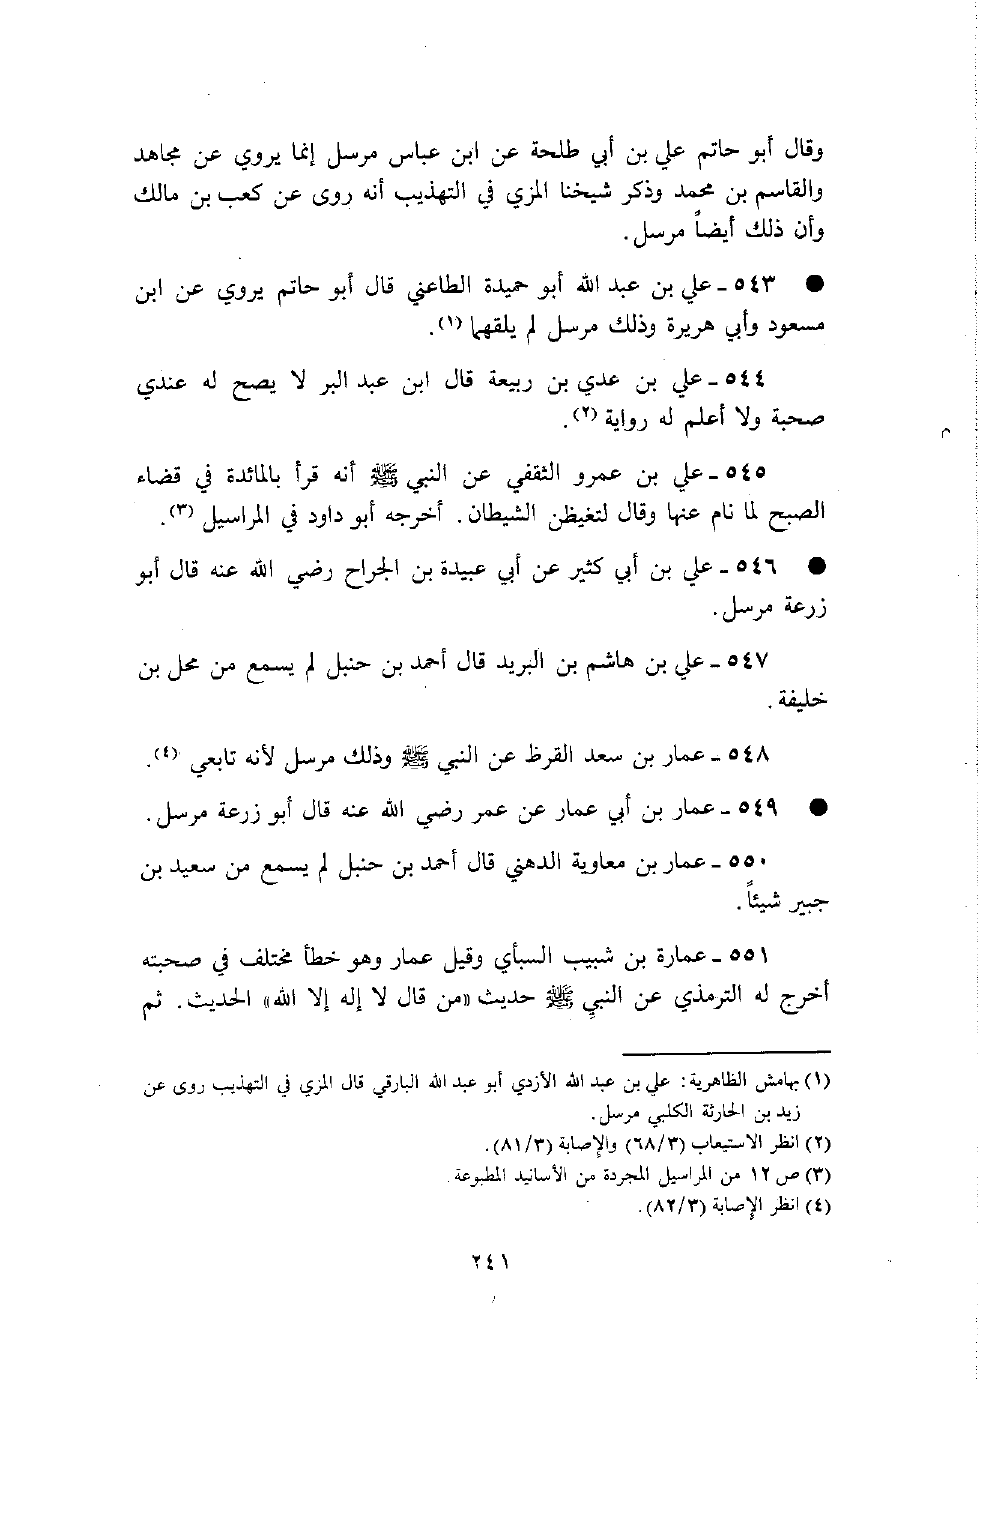 وقال أبو حاتم علي بن أبي طلحة عن ابن عباس مرسل إنما يروي عن مجاهد
والقاسم بن محمد وذكر شيخنا المزي في التهذيب أنه روى عن كعب بن مالك
وأن ذلك أيضاً مرسل.
● ٥٤٣ ـ علي بن عبد الله أبو حميدة الطاعني قال أبو حاتم يروي عن ابن
مسعود وأبي هريرة وذلك مرسل لم يلقهما (١).
٥٤٤ ـ علي بن عدي بن ربيعة قال ابن عبد البر لا يصح له عندي
صحبة ولا أعلم له رواية (٢).
٥٤٥ ـ علي بن عمرو الثقفي عن النبي ﷺ أنه قرأ بالمائدة في قضاء
الصبح لما نام عنها وقال لتغيظن الشيطان. أخرجه أبو داود في المراسيل (٣).
● ٥٤٦ ـ علي بن أبي كثير عن أبي عبيدة بن الجراح رضي الله عنه قال أبو
زرعة مرسل.
٥٤٧ ـ علي بن هاشم بن البريد قال أحمد بن حنبل لم يسمع من محل بن
خليفة.
٥٤٨ ـ عمار بن سعد القرظ عن النبي ﷺ وذلك مرسل لأنه تابعي (٤).
● ٥٤٩ ـ عمار بن أبي عمار عن عمر رضي الله عنه قال أبو زرعة مرسل.
٥٥٠ ـ عمار بن معاوية الدهني قال أحمد بن حنبل لم يسمع من سعيد بن
جبير شيئاً.
٥٥١ ـ عمارة بن شبيب السبأي وقيل عمار وهو خطأ مختلف في صحبته
أخرج له الترمذي عن النبي ﷺ حديث «من قال لا إله إلا الله» الحديث. ثم
(١) بهامش الظاهرية: علي بن عبد الله الأزدي أبو عبد الله البارقي قال المزي في التهذيب روى عن
زيد بن الحارثة الكلبي مرسل.
(٢) انظر الاستيعاب (٦٨/٣) والإصابة (٨١/٣).
(٣) ص ١٢ من المراسيل المجردة من الأسانيد المطبوعة.
(٤) انظر الإصابة (٨٢/٣).
٢٤١